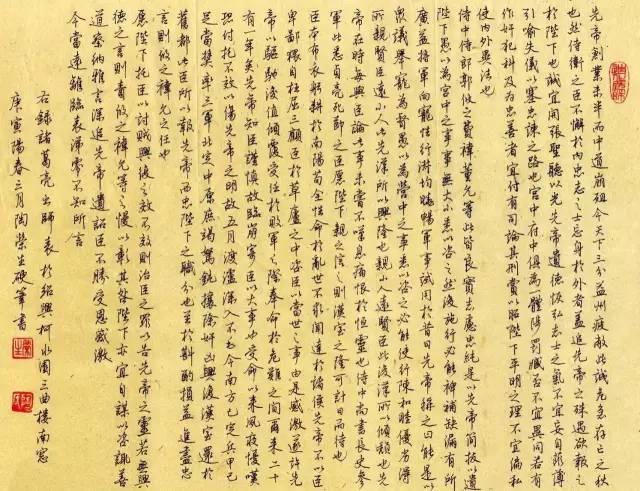 先帝創業未半而中道崩殂今天下三分益州疲敝此誠危急存亡之秋
也然侍衛之臣不懈於內忠志之士忘身於外者蓋追先帝之殊遇欲報之
於陛下也誠宜開張聖聽以光先帝遺德恢弘志士之氣不宜妄自菲薄
引喻失儀以塞忠諫之路也宮中府中俱為一體陟罰臧否不宜異同若有
作奸犯科及為忠善者宜付有司論其刑賞以昭陛下平明之理不宜偏私
使內外異法也
侍中侍郎郭攸之費禕董允等此皆良實志慮忠純是以先帝簡拔以遺
陛下愚以為宮中之事事無大小悉以咨之然後施行必能裨補缺漏有所
廣益將軍向寵性行淑均曉暢軍事試用於昔日先帝稱之曰能是以
眾議舉寵為督愚以為營中之事悉以咨之必能使行陳和睦優劣得
所親賢臣遠小人此先漢所以興隆也親小人遠賢臣此後漢所以傾頹也先
帝在時每與臣論此事未嘗不嘆息痛恨於桓靈也侍中尚書長史參
軍此悉貞亮死節之臣願陛下親之信之則漢室之隆可計日而待也
臣本布衣躬耕於南陽苟全性命於亂世不求聞達於諸侯先帝不以臣
卑鄙猥自枉屈三顧臣於草廬之中咨臣以當世之事由是感激遂許先
帝以驅馳後值傾覆受任於敗軍之際奉命於危難之間爾來二十
有一年矣先帝知臣謹慎故臨崩寄臣以大事也受命以來夙夜憂嘆
恐付托不效以傷先帝之明故五月渡瀘深入不毛今南方已定兵甲已
足當獎率三軍北定中原庶竭駑鈍攘除奸凶興復漢室還於
舊都此臣所以報先帝而忠陛下之職分也至於斟酌損益進盡忠
言則攸之禕允之任也
願陛下托臣以討賊興復之效不效則治臣之罪以告先帝之靈若無興
德之言則責攸之禕允等之慢以彰其咎陛下亦宜自謀以咨諏善
道察納雅言深追先帝遺詔臣不勝受恩感激
今當遠離臨表涕零不知所言
右錄諸葛亮出師表於紹興柯水園三曲樓南窓
庚寅陽春三月陶榮生硬筆書